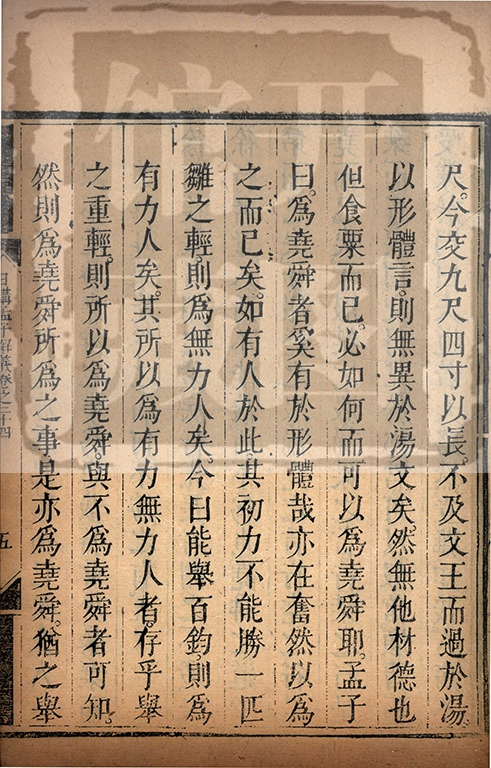 尺。今交九尺四寸以長。不及文王而過於湯。
以形體言。則無異於湯文矣。然無他材德也
但食粟而已。必如何而可以為堯舜耶。孟子
曰。為堯舜者奚有於形體哉亦在奮然以為
之而已矣。如有人於此。其初力不能勝一匹
雛之輕。則為無力人矣。今曰能舉百鈞。則為
有力人矣。其所以為有力無力人者。存乎舉
之重輕。則所以為堯舜。與不為堯舜者可知。
然則為堯舜所為之事。是亦為堯舜。猶之舉
日講孟子解義卷之二十四
五